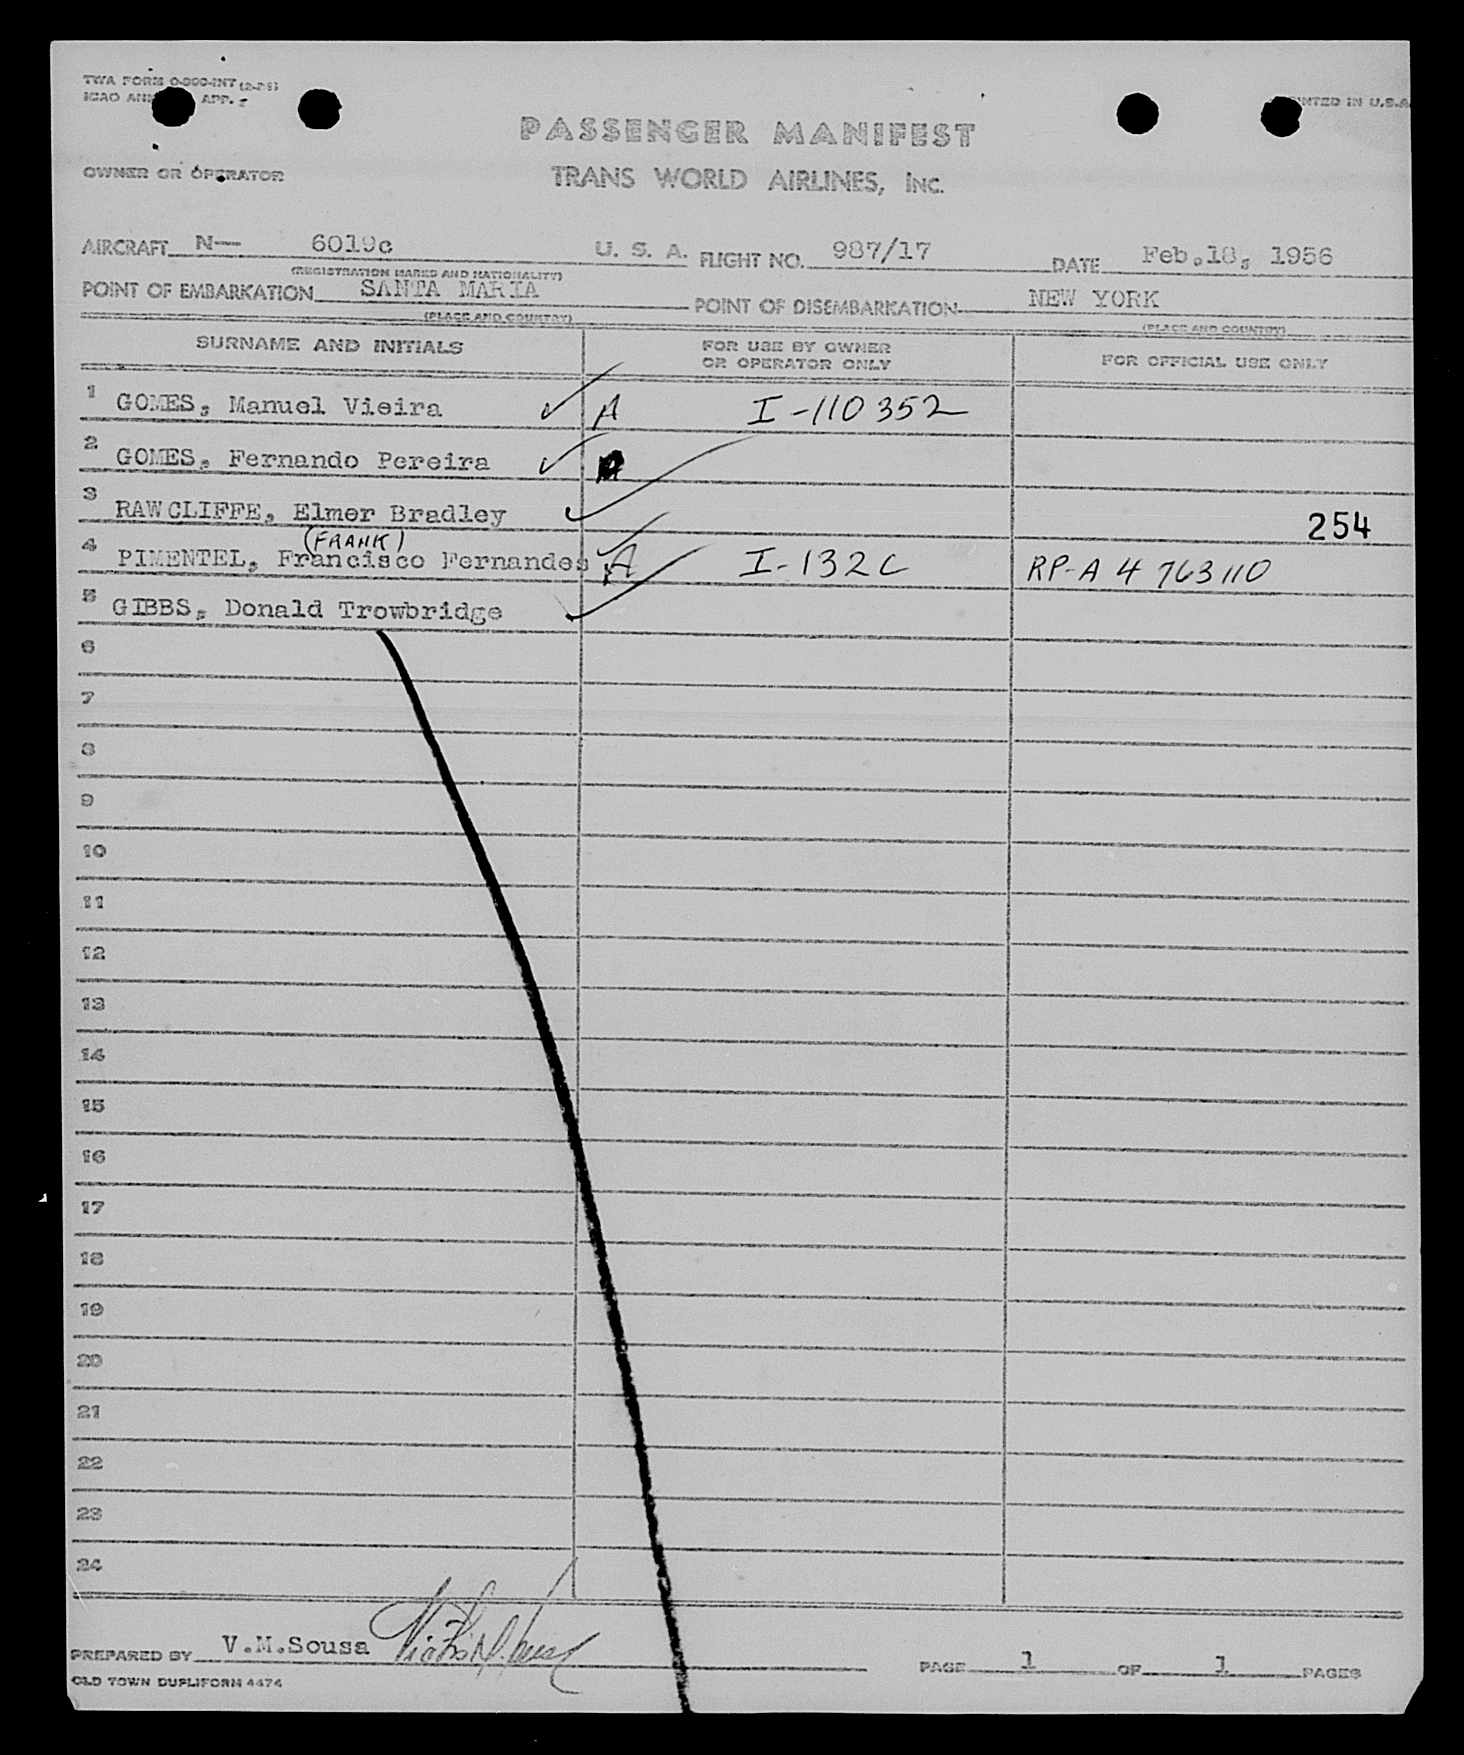 TWA FORM O-900-INT (2-55)
ICAO ANN APP. -
PRINTED IN U.S.A
PASSENGER MANIFEST
OWNER OR OPERATOR TRANS WORLD AIRLINES, INC.
AIRCRAFT N— 6019c U. S. A. FLIGHT NO. 987/17 DATE Feb.18, 1956
(REGISTRATION MARKS AND NATIONALITY)
POINT OF EMBARKATION SANTA MARIA POINT OF DISEMBARKATION NEW YORK
(PLACE AND COUNTRY) (PLACE AND COUNTRY)
SURNAME AND INITIALS FOR USE BY OWNER OR OPERATOR ONLY FOR OFFICIAL USE ONLY
1 GOMES, Manuel Vieira A I-110352
2 GOMES, Fernando Pereira A
3 RAWCLIFFE, Elmer Bradley 254
(FRANK)
4 PIMENTEL, Francisco Fernandes A I-132C RP-A 4 763110
5 GIBBS, Donald Trowbridge
6
7
8
9
10
11
12
13
14
15
16
17
18
19
20
21
22
23
24
PREPARED BY V.M.Sousa PAGE 1 OF 1 PAGES
OLD TOWN DUPLIFORM 4474